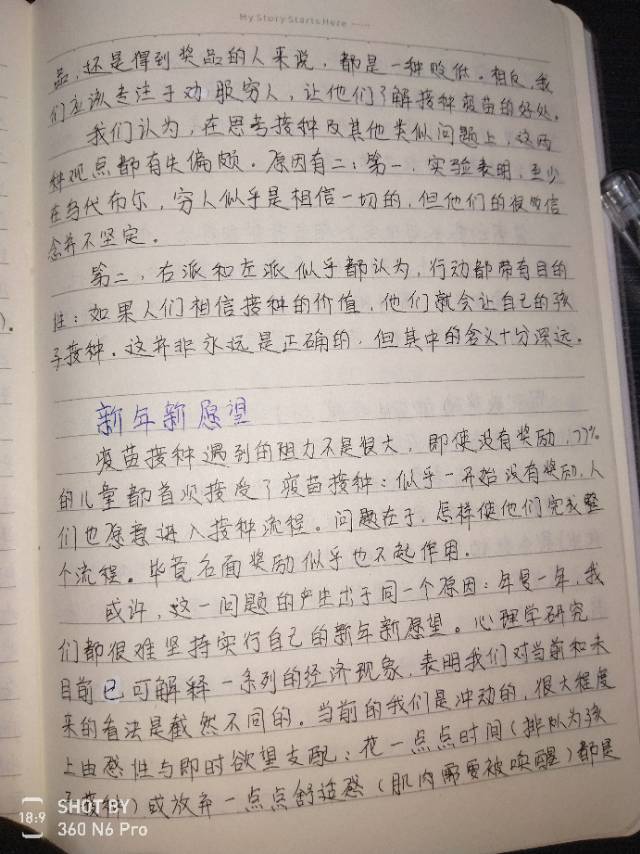 My Story Starts Here
品，还是得到奖品的人来说，都是一种贬低。相反，我
们应该专注于劝服穷人，让他们了解接种疫苗的好处。
我们认为，在思考接种及其他类似问题上，这两
种观点都有失偏颇。原因有二：第一，实验表明，至少
在乌代布尔，穷人似乎是相信一切的，但他们的很多信
念并不坚定。
第二，右派和左派似乎都认为，行动都带有目的
性：如果人们相信接种的价值，他们就会让自己的孩
子接种。这并非永远是正确的，但其中的含义十分深远。
新年新愿望
疫苗接种遇到的阻力不是很大，即使没有奖励，77%
的儿童都首次接受了疫苗接种：似乎一开始没有奖励，人
们也愿意进入接种流程。问题在于，怎样使他们完成整
个流程。毕竟后面奖励似乎也不起作用。
或许，这一问题的产生出于同一个原因：年复一年，我
们都很难坚持实行自己的新年新愿望。心理学研究
目前已可解释一系列的经济现象，表明我们对当前和未
来的看法是截然不同的。当前的我们是冲动的，很大程度
上由感性与即时欲望支配：花一点点时间（排队为孩
子接种）或放弃一点点舒适感（肌肉需要被唤醒）都是
).
18:9
SHOT BY
360 N6 Pro